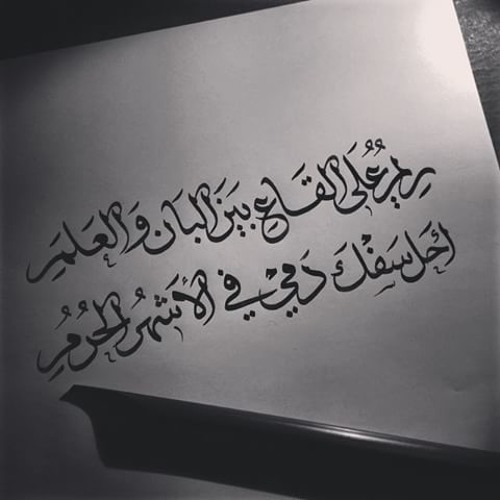 ريم عُلَى القَاعِ بَينَ البَانِ وَالعَلَمِ
أحل سَفْكَ دَمِي في الأَشهُرِ الحُرُمُ